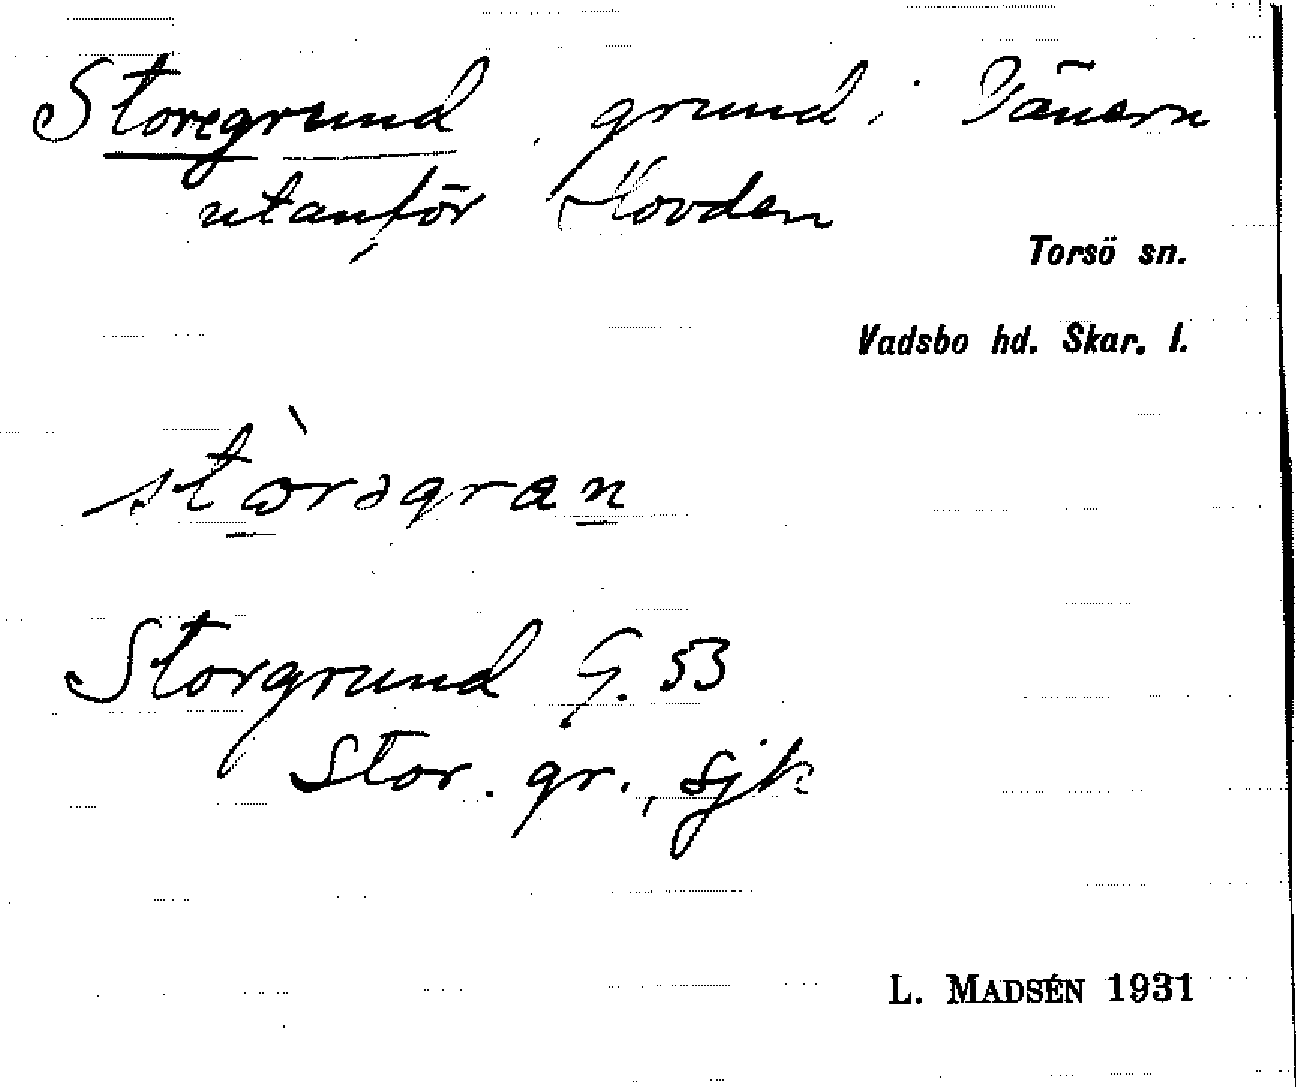 Storegrund, grund i Vänern
utanför Hovden
Torsö sn.
Vadsbo hd. Skar. l.
Storgrund G. 53
Stor. gr., sjk
L. MADSÉN 1931